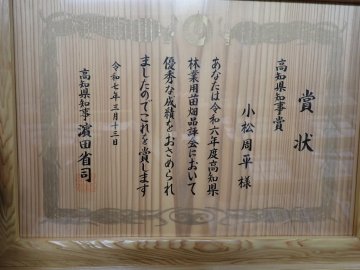 賞状
高知県知事賞
小松周平様
あなたは令和六年度高知県
林業用苗畑品評会において
優秀な成績をおさめられ
ましたのでこれを賞します
令和七年三月十三日
高知県知事濵田省司